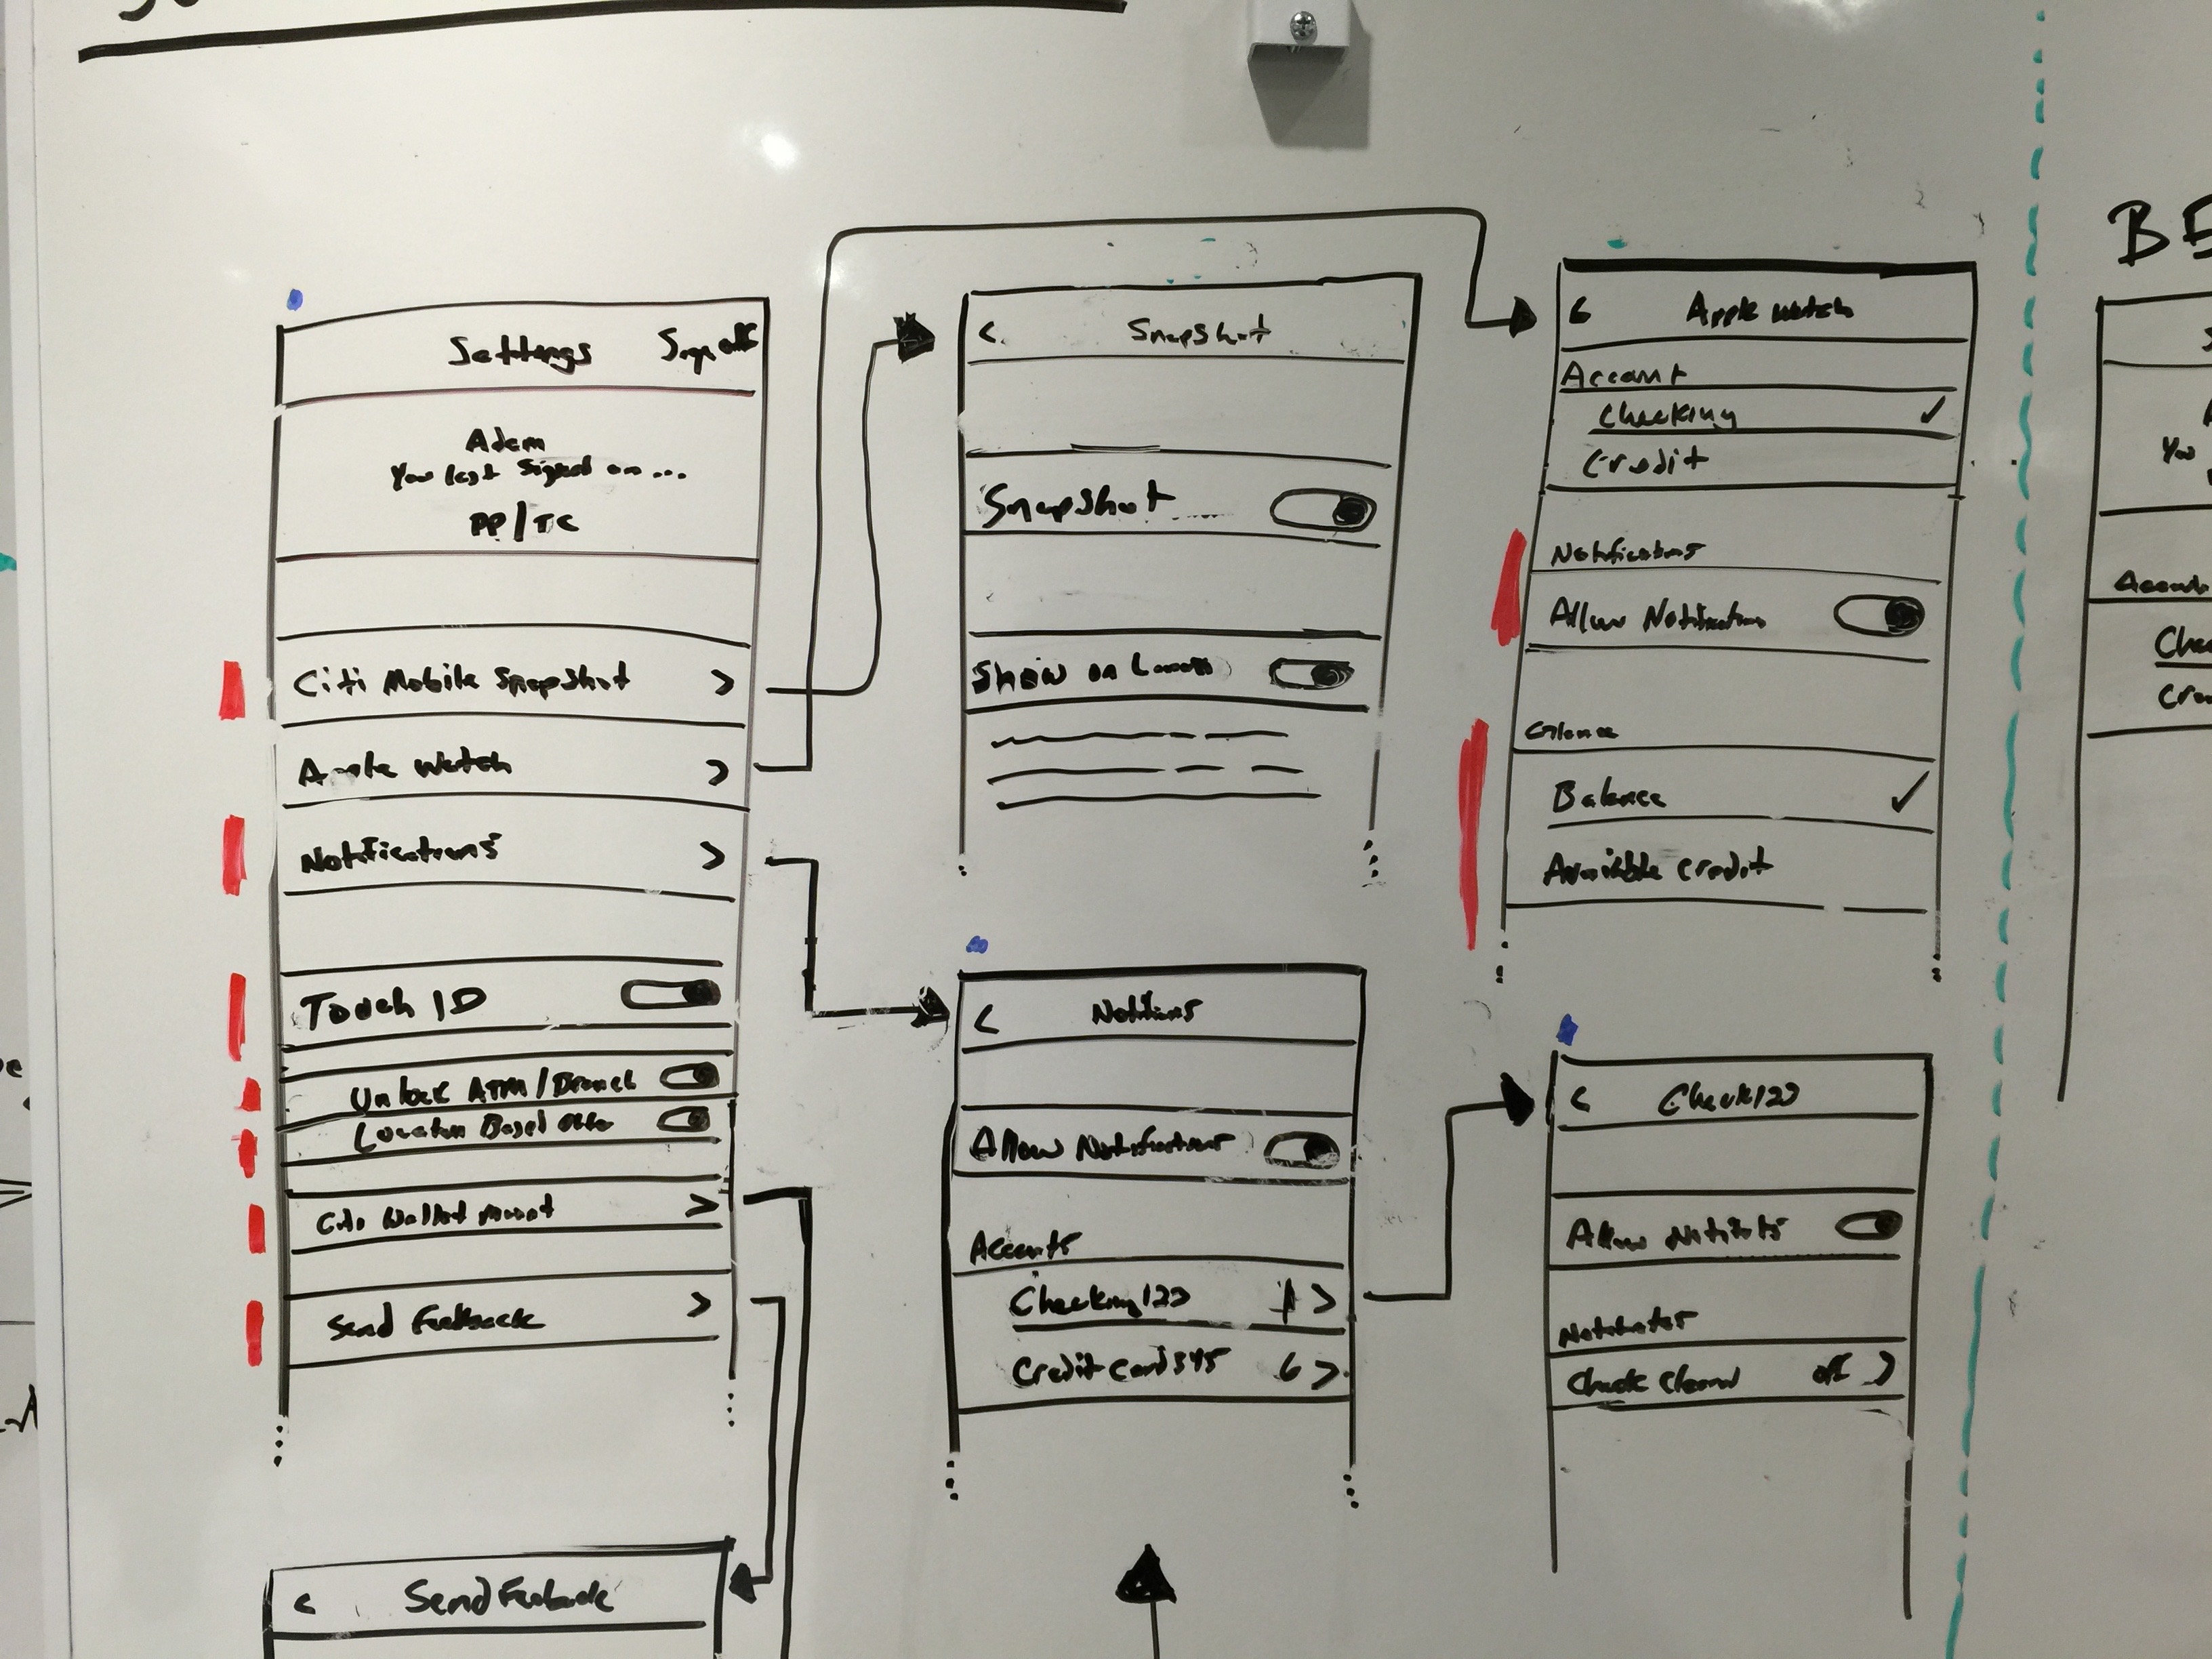 Settings Sign off
Adam
You last signed on ...
PP/TC
Citi Mobile Snapshot >
Apple Watch >
Notifications >
Touch ID
Unlock ATM/Branch
Location Based
Citi Wallet >
Send Feedback >
< Send Feedback
< Snapshot
Snapshot
Show on
<
Allow Notifications
Accounts
Checking 123 1 >
Credit Card 345 6 >
< Apple Watch
Account
Checking ✓
Credit
Notifications
Allow Notifications
Glance
Balance ✓
Available Credit
< Check 123
Allow
Check off >
BE
You
Che
Cre